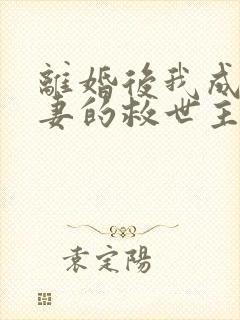 離婚後我成
妻的救世主
袁定陽